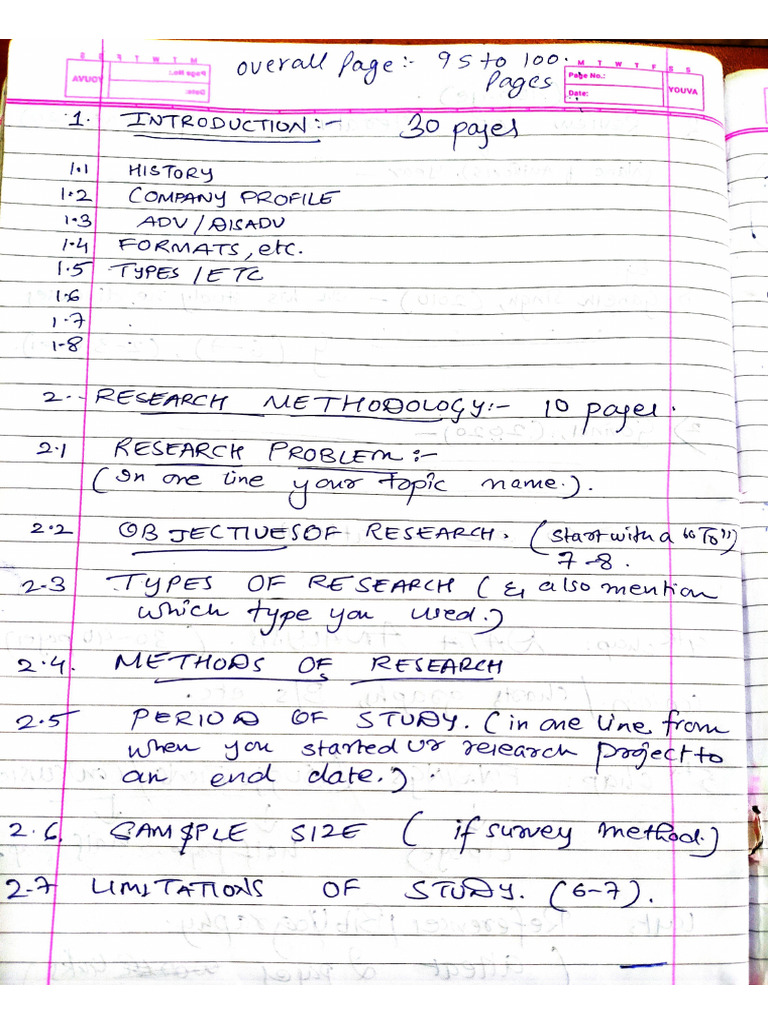 overall Page:- 95 to 100.
Pages
M T W T F S S
Page No.:
Date:
YOUVA
1. INTRODUCTION:- 30 pages
1.1 HISTORY
1.2 COMPANY PROFILE
1.3 ADV / DISADV
1.4 FORMATS, etc.
1.5 TYPES / ETC
1.6
1.7
1.8
2. RESEARCH METHODOLOGY:- 10 pages.
2.1 RESEARCH PROBLEM:-
(In one line your topic name.).
2.2 OBJECTIVES OF RESEARCH. (start with a "To")
7-8.
2.3 TYPES OF RESEARCH (& also mention
which type you used.)
2.4. METHODS OF RESEARCH
2.5 PERIOD OF STUDY. (in one line from
when you started ur research project to
an end date.).
2.6. SAMPLE SIZE (if survey method.)
2.7 LIMITATIONS OF STUDY. (6-7).